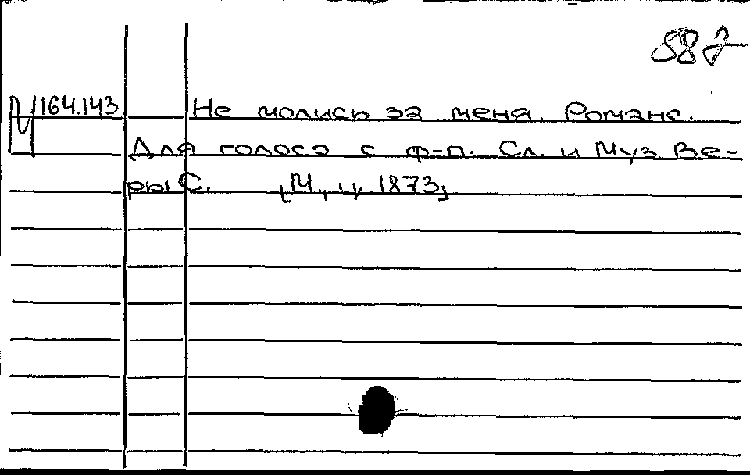 587
164.143 Не молись за меня. Романс.
Для голоса с ф-п. Сл. и Муз Ве-
ры С. [М., ц, 1873]